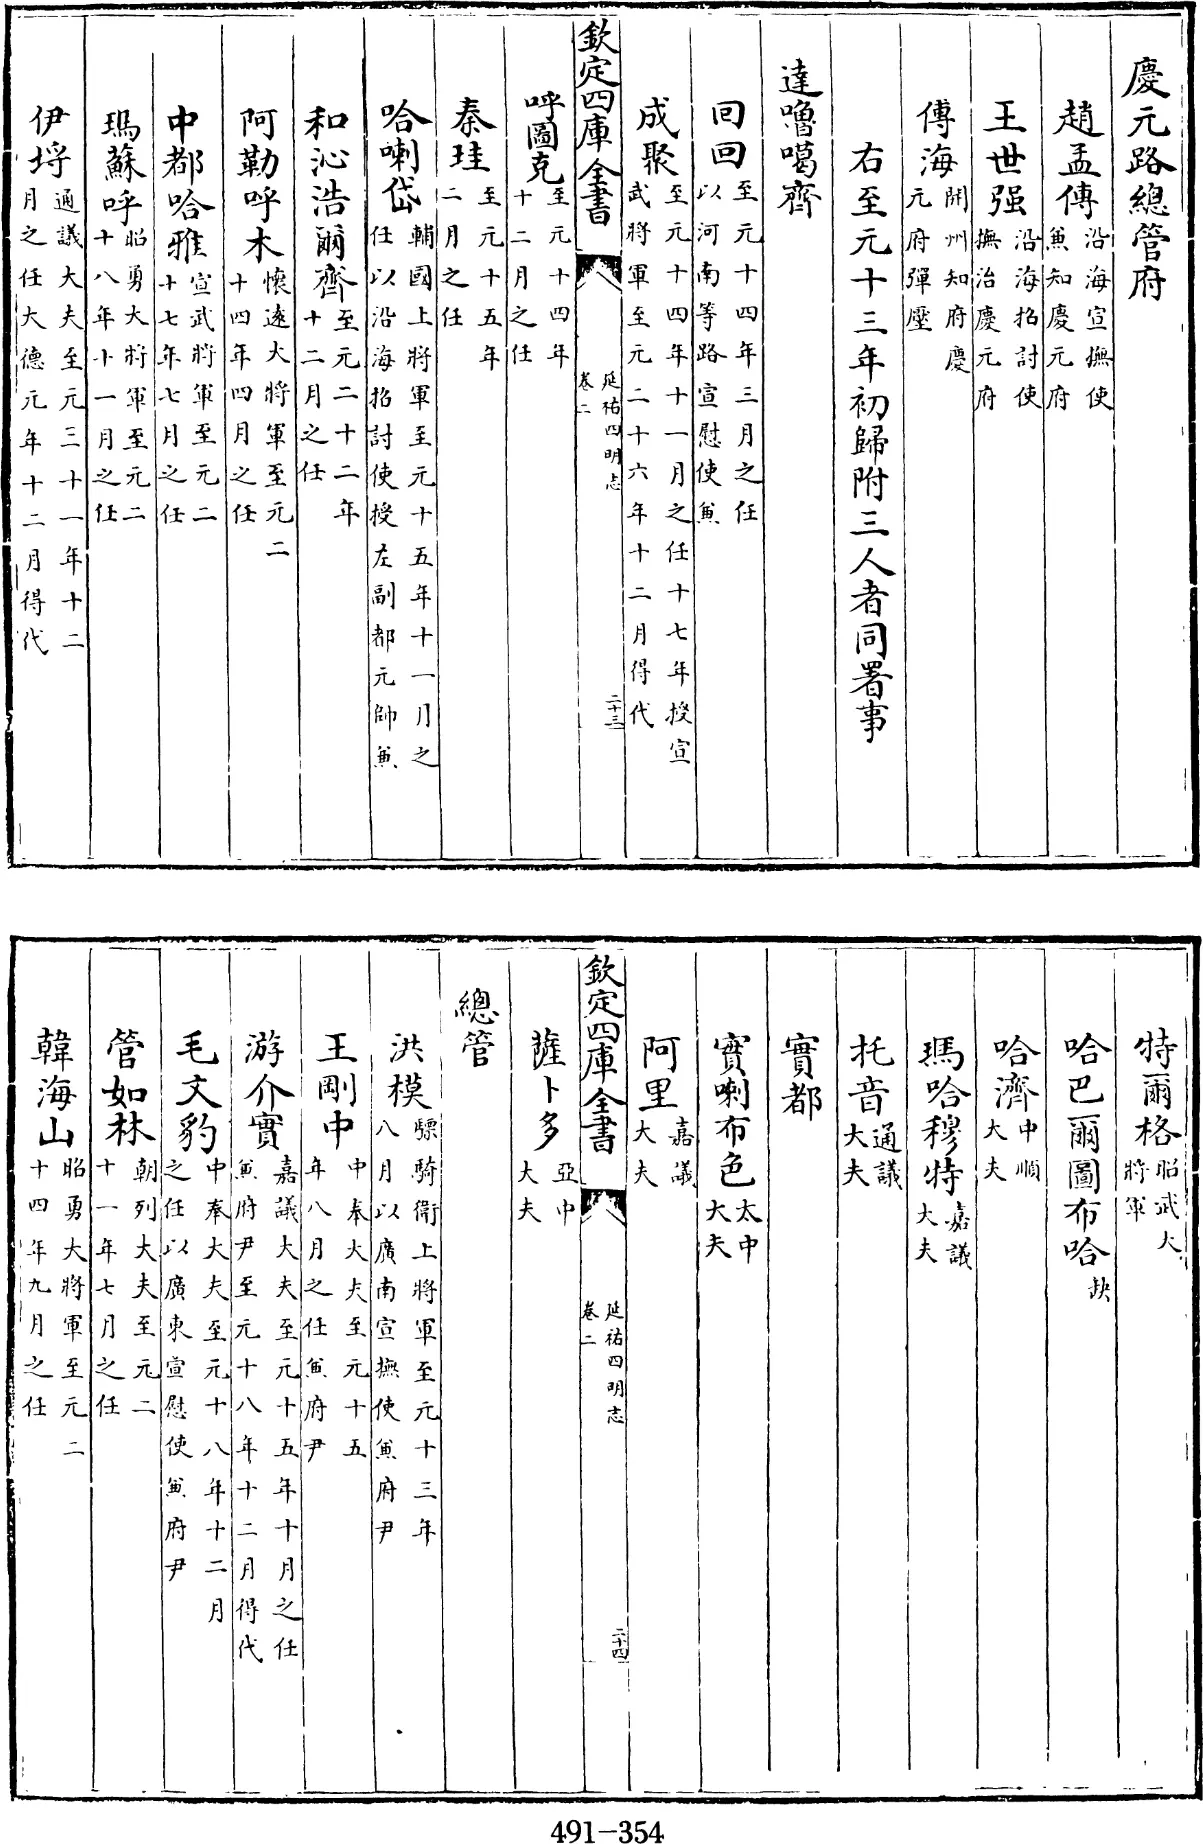 慶元路總管府
趙孟傳沿海宣撫使兼知慶元府
王世强沿海招討使撫治慶元府
傅海開州知府慶元府彈壓
右至元十三年初歸附三人者同署事
達嚕噶齊
回回至元十四年三月之任以河南等路宣慰使兼
成聚至元十四年十一月之任十七年授宣武將軍至元二十六年十二月得代
欽定四庫全書
延祐四明志
卷二
二十三
呼圖克至元十四年十二月之任
秦珪至元十五年二月之任
哈喇岱輔國上將軍至元十五年十一月之任以沿海招討使授左副都元帥兼
和沁浩爾齊至元二十二年十二月之任
阿勒呼木懷遠大將軍至元二十四年四月之任
中都哈雅宣武將軍至元二十七年七月之任
瑪蘇呼昭勇大將軍至元二十八年十一月之任
伊埒通議大夫至元三十一年十二月之任大德元年十二月得代
特爾格昭武大將軍
哈巴爾圖布哈缺
哈濟中順大夫
瑪哈穆特嘉議大夫
托音通議大夫
實都
實喇布色太中大夫
阿里嘉議大夫
欽定四庫全書
延祐四明志
卷二
二十四
薩卜多亞中大夫
總管
洪模驃騎衛上將軍至元十三年八月以廣南宣撫使兼府尹
王剛中中奉大夫至元十五年八月之任兼府尹
游介實嘉議大夫至元十五年十月之任兼府尹至元十八年十二月得代
毛文豹中奉大夫至元十八年十二月之任以廣東宣慰使兼府尹
管如林朝列大夫至元二十一年七月之任
韓海山昭勇大將軍至元二十四年九月之任
491-354